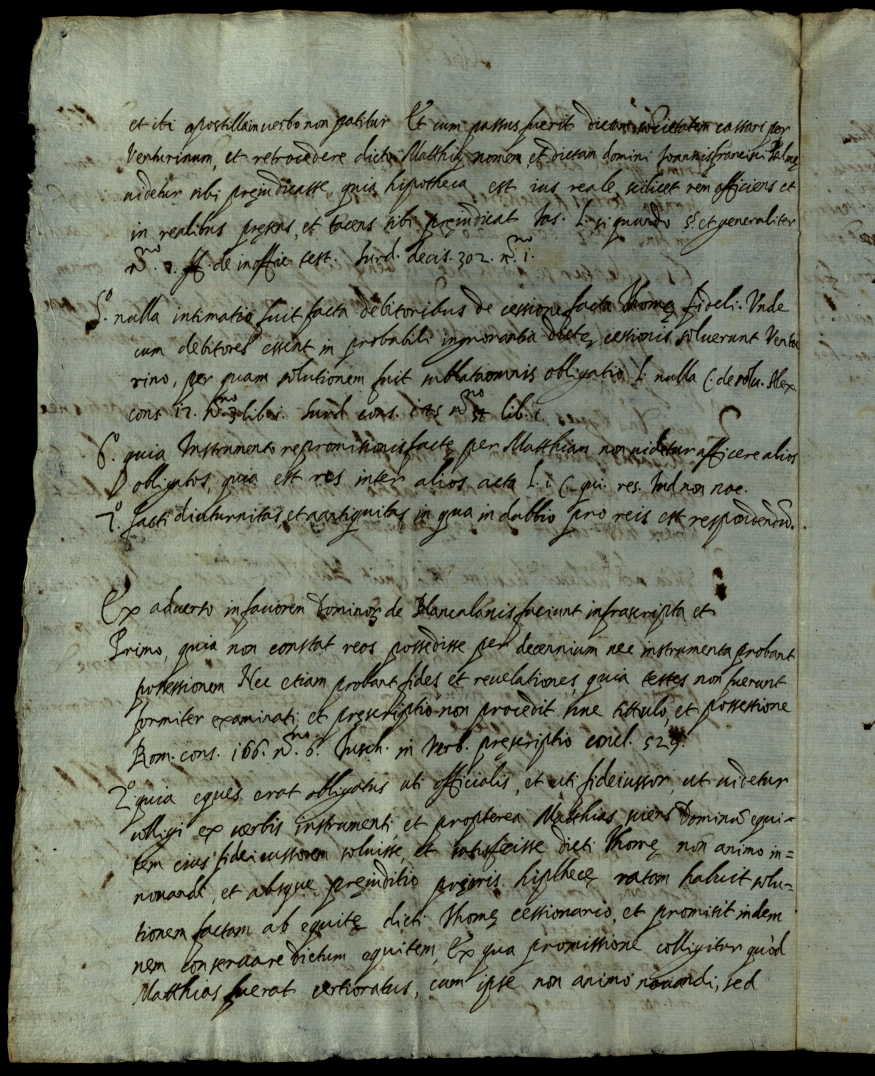 et ibi apostilla in verbo non patitur Et cum passus fuerit dictam societatem cassari per
Venturinum, et retrocedere dicto Matthię nomen, et dictam domini Joannis francisci
uidetur sibi pręiudicasse, quia hipotheca est ius reale, scilicet rem afficiens et
in realibus pręsens, et tacens sibi pręiudicat Ias. l. si quando §. et generaliter
n.no ff. de inoffic. test. Surd. decis. 302. n.no 1.
5.o nulla intimatio fuit facta debitoribus de cessione facta Thomę fideli. Vnde
cum debitores essent in probabili ingnorantia dictę cessionis soluerunt Ventu
rino, per quam solutionem fuit sublata omnis obligatio l. nulla C. de solu. Alex.
cons 12. n.no 3 lib. 1. Surd. cons. n.no lib. 1.
6.o quia Instrumento repromissionis factę per Matthiam non uidetur afficere alios
obligatos, quia est res inter alios acta l. 1 C. qui. res. Iud. non noc.
7.o facti diuturnitas, et antiquitas in qua in dubbio pro reis est respondendũ.
Ex aduerso in fauorem Dominor de Blancalanis faciunt infrascripta et
Primo, quia non constat reos possedisse per decennium nec instrumenta probant
possessionem Nec etiam probant fides et reuelationes, quia testes non fuerunt
formiter examinati, et pręscriptio non procedit sine tittulo, et possessione
Rom. cons. 166. n.no 6. Tusch. in Verb. pręscriptio concl. 529.
2.o quia eques erat obligatus uti officialis, et uti fideiussor, ut uidetur
colligi ex uerbis instrumenti, et propterea Matthias sciens Dominũ equi-
tem eius fideiussorem soluisse, et satisfecisse dicti Thomę non animo in=
nouandi, et absque pręiuditio prioris hipthecę ratam habuit solu=
tionem factam ab equitę dicti Thomę cessionario, et promisit indem
nem conseruare dictum equitem, Ex qua promissione colligitur quòd
Matthias fuerat certioratus, cum ipse non animo nouandi, sed